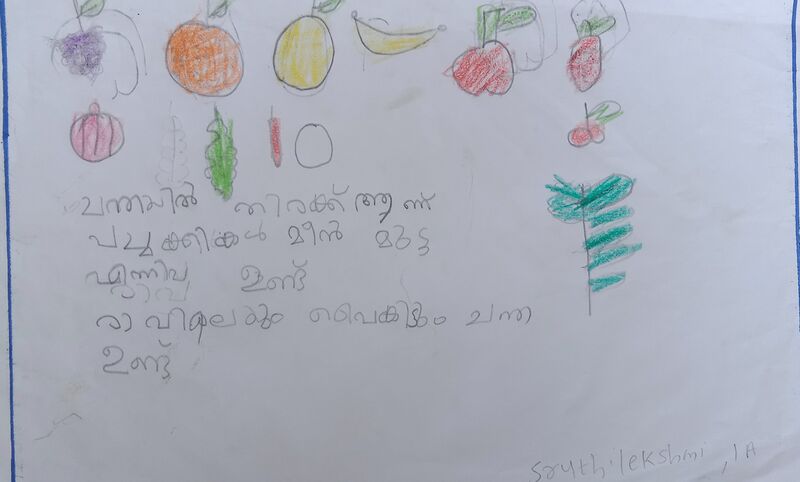 ചന്തയിൽ തിരക്ക് ആണ്
പച്ചക്കറികൾ മീൻ മുട്ട
എന്നിവ ഉണ്ട്
രാവിലെയും വൈകിട്ടും ചന്ത
ഉണ്ട്
Sruthilekshmi, 1A